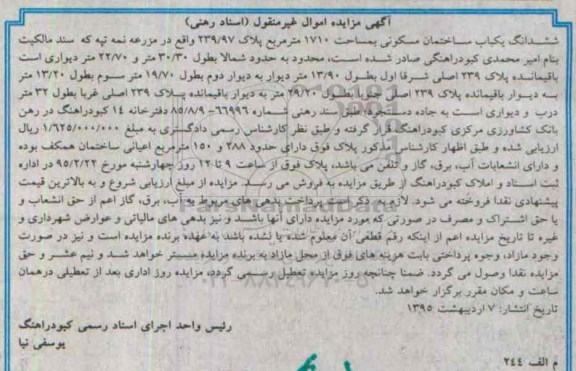 آگهی مزایده اموال غیرمنقول (اسناد رهنی)
ششدانگ یکباب ساختمان مسکونی بمساحت ۱۷۱۰ مترمربع پلاک ۲۳۹/۹۷ واقع در مزرعه نمه تپه که سند مالکیت
بنام امیر محمدی کبودراهنگی صادر شده است، محدود به حدود شمالا بطول ۳۰/۳۰ متر و ۲۲/۷۰ متر دیواری است
باقیمانده پلاک ۲۳۹ اصلی شرقا اول بطول ۱۳/۹۰ متر دیوار به دیوار دوم بطول ۱۹/۷۰ متر سوم بطول ۱۳/۲۰ متر
به دیوار باقیمانده پلاک ۲۳۹ اصلی جنوبا بطول ۲۹/۲۰ متر به دیوار باقیمانده پلاک ۲۳۹ اصلی غربا بطول ۳۲ متر
درب و دیواری است به جاده دستجرد؛ طبق سند رهنی شماره ۶۶۹۹۶-۸۵/۸/۹ دفترخانه ۱۴ کبودراهنگ در رهن
بانک کشاورزی مرکزی کبودراهنگ قرار گرفته و طبق نظر کارشناس رسمی دادگستری به مبلغ ۱/۶۲۵/۰۰۰/۰۰۰ ریال
ارزیابی شده و طبق اظهار کارشناس مذکور پلاک فوق دارای حدود ۲۸۸ و ۱۵۰ مترمربع اعیانی ساختمان همکف بوده
و دارای انشعابات آب، برق، گاز و تلفن می باشد، پلاک فوق از ساعت ۹ تا ۱۲ روز چهارشنبه مورخ ۹۵/۲/۲۲ در اداره
ثبت اسناد و املاک کبودراهنگ از طریق مزایده به فروش می رسد. مزایده از مبلغ ارزیابی شروع و به بالاترین قیمت
پیشنهادی نقدا فروخته می شود. لازم به ذکر است پرداخت بدهی های مربوط به آب، برق، گاز اعم از حق انشعاب و
یا حق اشتراک و مصرف در صورتی که مورد مزایده دارای آنها باشد و نیز بدهی های مالیاتی و عوارض شهرداری و
غیره تا تاریخ مزایده اعم از اینکه رقم قطعی آن معلوم شده یا نشده باشد به عهده برنده مزایده است و نیز در صورت
وجود مازاد، وجوه پرداختی بابت هزینه های فوق از محل مازاد به برنده مزایده مسترد خواهد شد و نیم عشر و حق
مزایده نقدا وصول می گردد. ضمنا چنانچه روز مزایده تعطیل رسمی گردد، مزایده روز اداری بعد از تعطیلی درهمان
ساعت و مکان مقرر برگزار خواهد شد.
تاریخ انتشار: ۷ اردیبهشت ۱۳۹۵
رئیس واحد اجرای اسناد رسمی کبودراهنگ
یوسفی نیا
م الف ۲۴۴